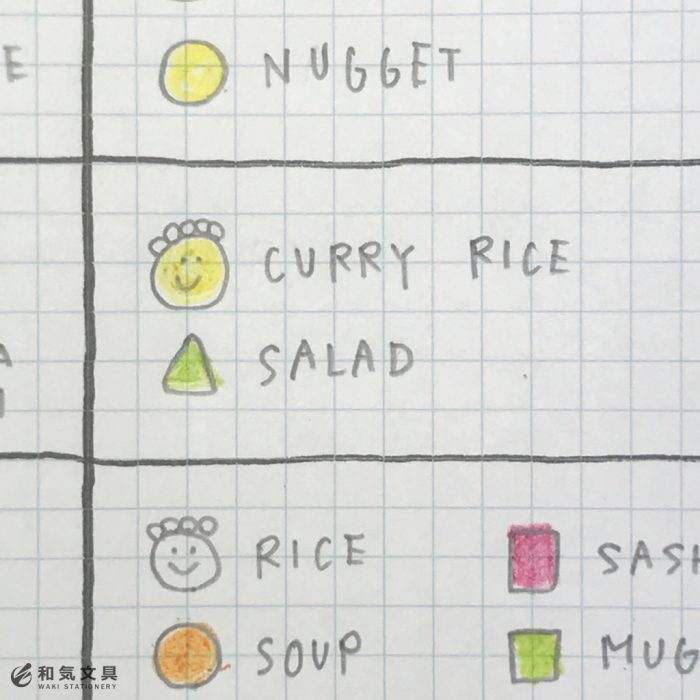 E
NUGGET
CURRY RICE
SALAD
A
RICE
SASH
SOUP
MUG
和気文具
WAKI STATIONERY